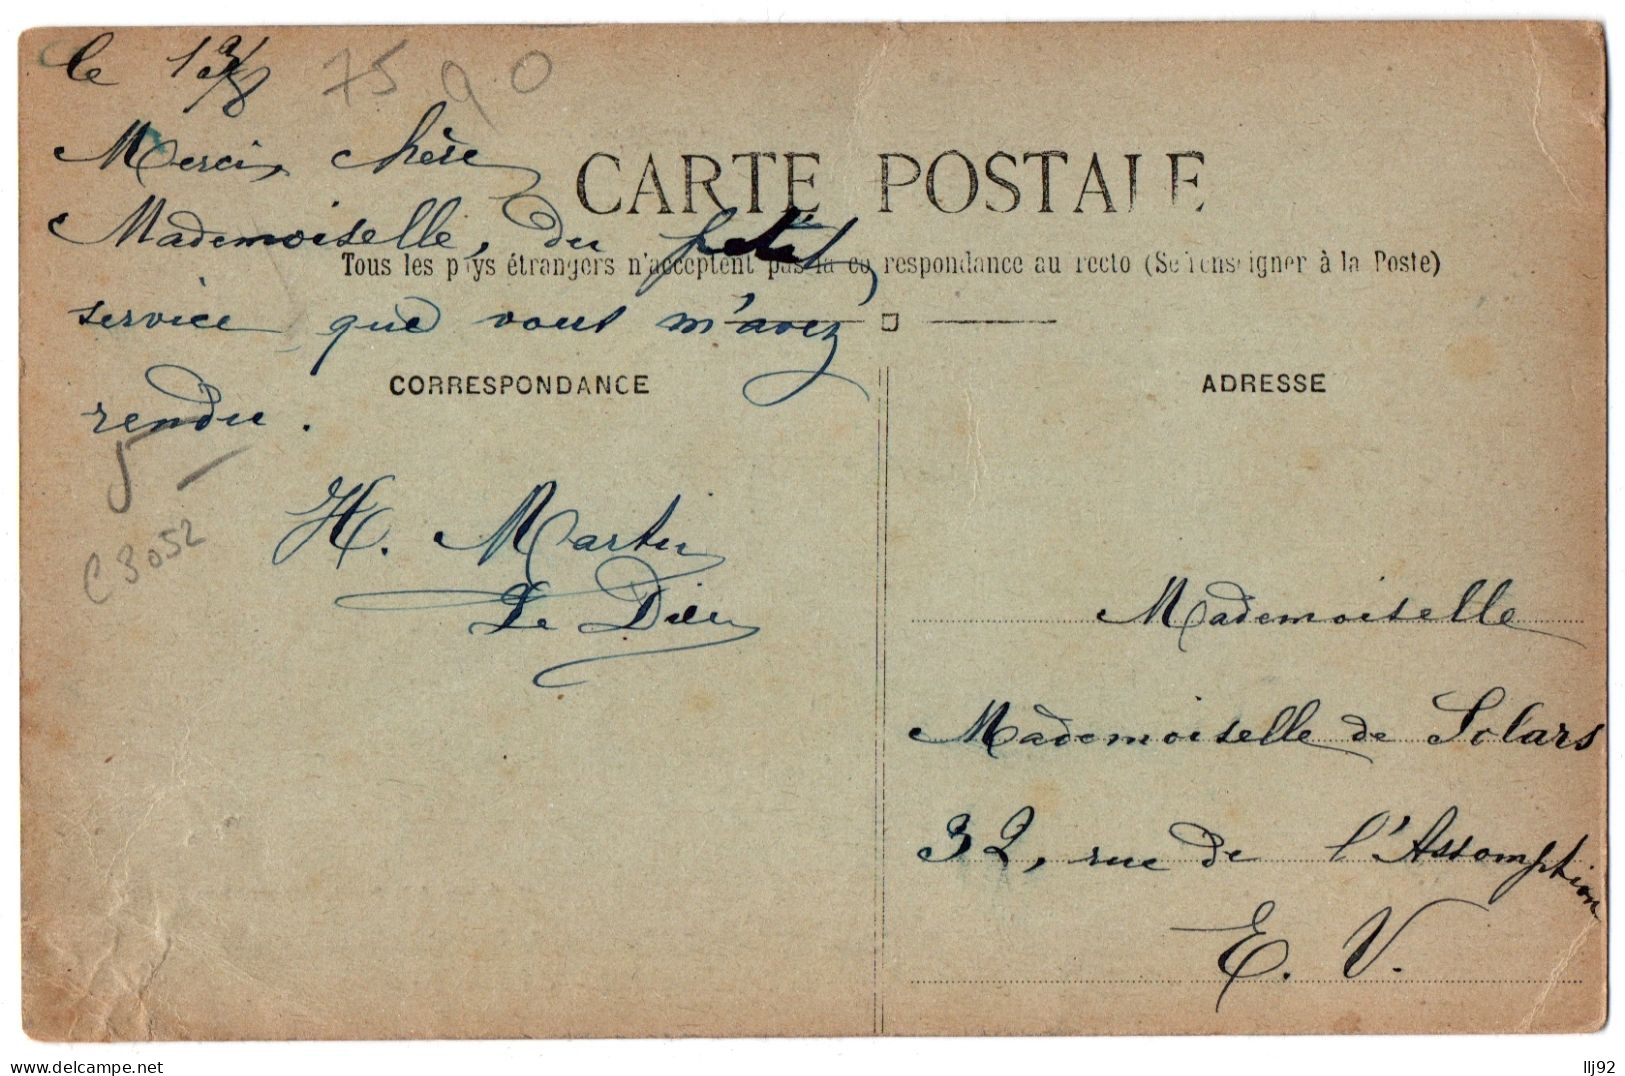 le 13/8
7590
Merci, chère
CARTE POSTALE
Mademoiselle, du petit
Tous les pays étrangers n'acceptent pas la correspondance au recto (Se renseigner à la Poste)
service que vous m'avez
rendu.
CORRESPONDANCE
5 -
C 3052
H. Martin
Le Dieu
ADRESSE
Mademoiselle
Mademoiselle de Solars
32, rue de l'Assomption
E. V.
llj92